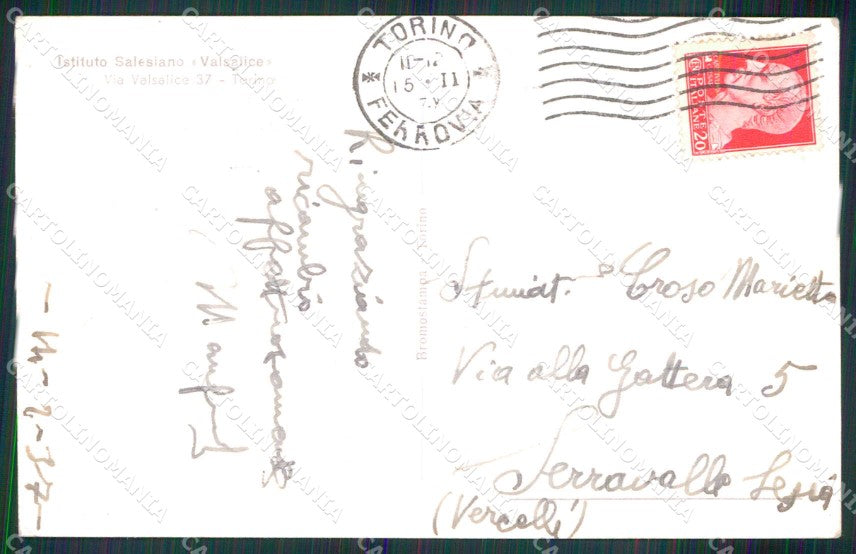 Istituto Salesiano «Valsalice»
Via Valsalice 37 - Torino
TORINO
FERROVIA
15 II
POSTE
ITALIANE
20
Ringraziando
ricambio
affettuosamente
-14-2-37-
Bromostampa - Torino
Croso Marietta
Via alla Gattera 5
Serravalle Sesia
(Vercelli)
CARTOLINOMANIA